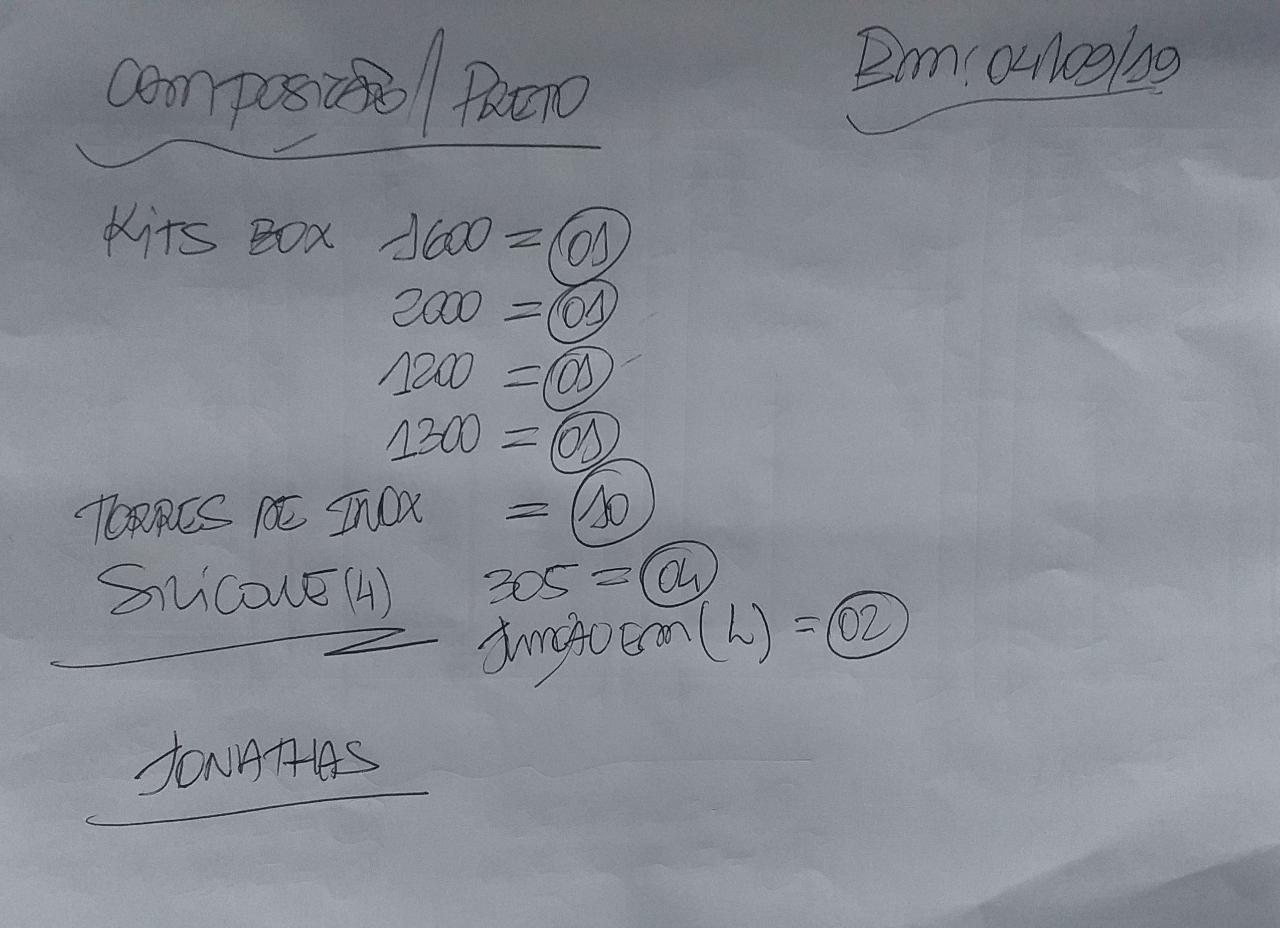 Composição // PRETO
Em: 04/09/19
Kits BOX 1600 = 01
2000 = 01
1200 = 01
1300 = 01
TORRES DE INOX = 10
SiliCONE (4) 305 = 04
JUNÇÃO Em (L) = 02
JONATHAS